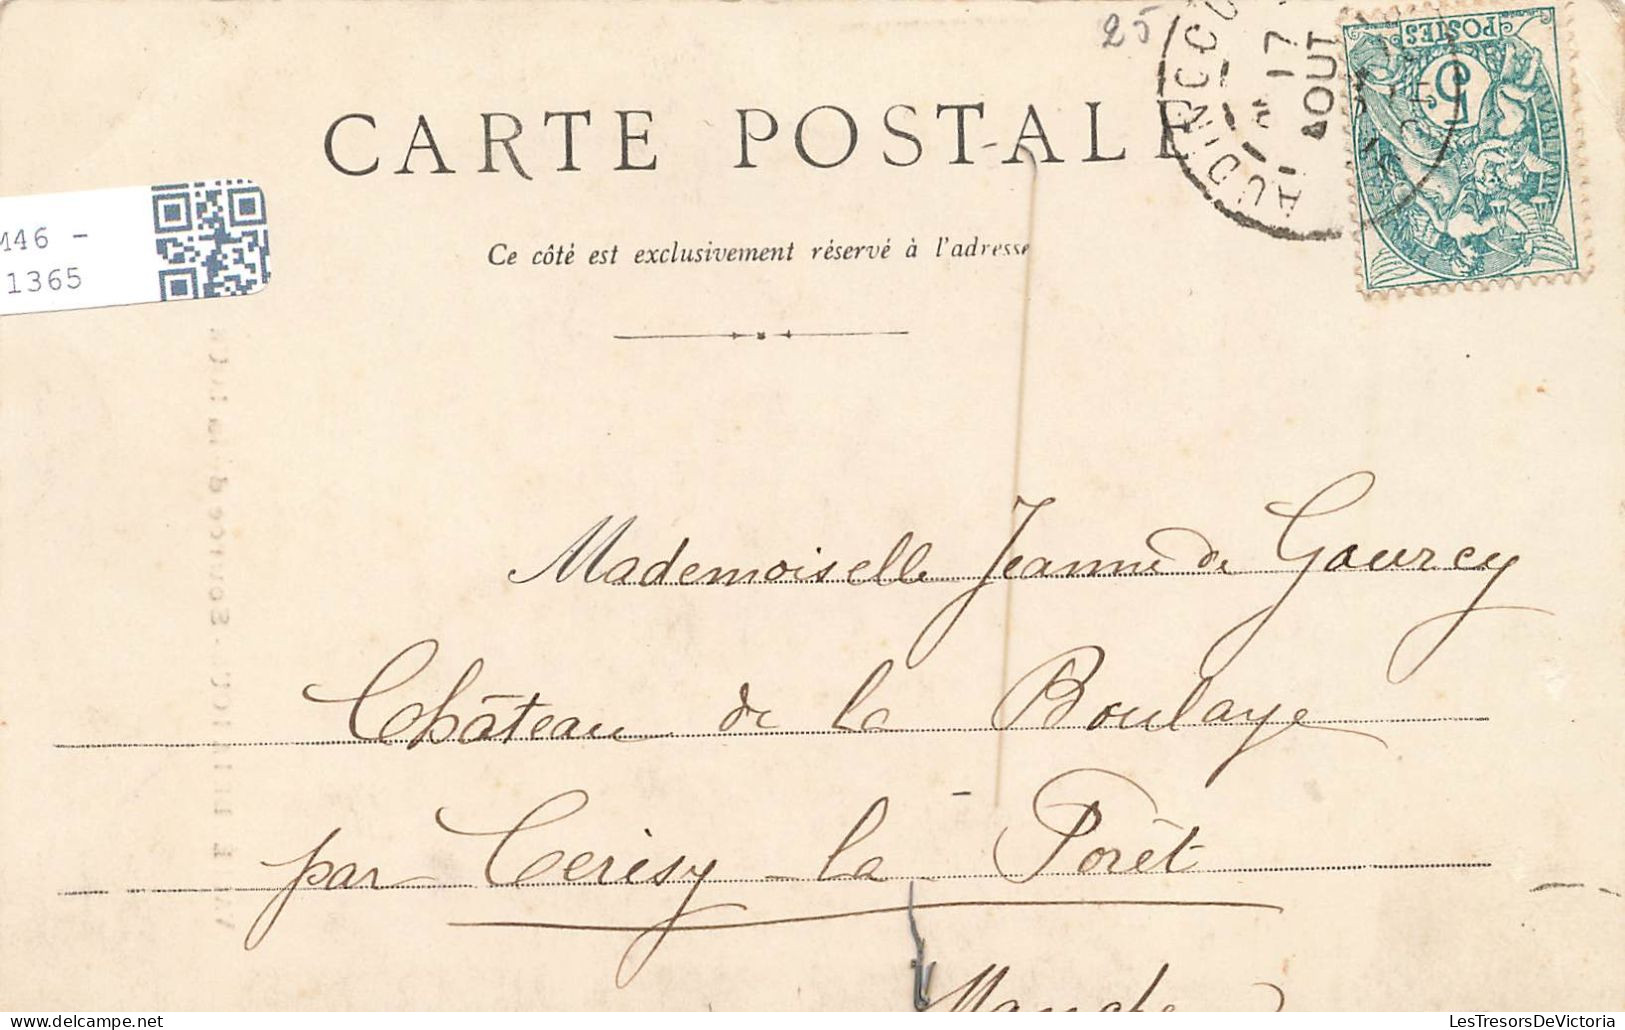 25
CARTE POSTALE
AUDINCOU
17
AOUT
POSTES
5
M46 -
1365
Ce côté est exclusivement réservé à l'adresse
Mademoiselle Jeanne de Gourcy
Château de la Boulaye
par Cerisy-la-Forêt
Manche
LesTresorsDeVictoria